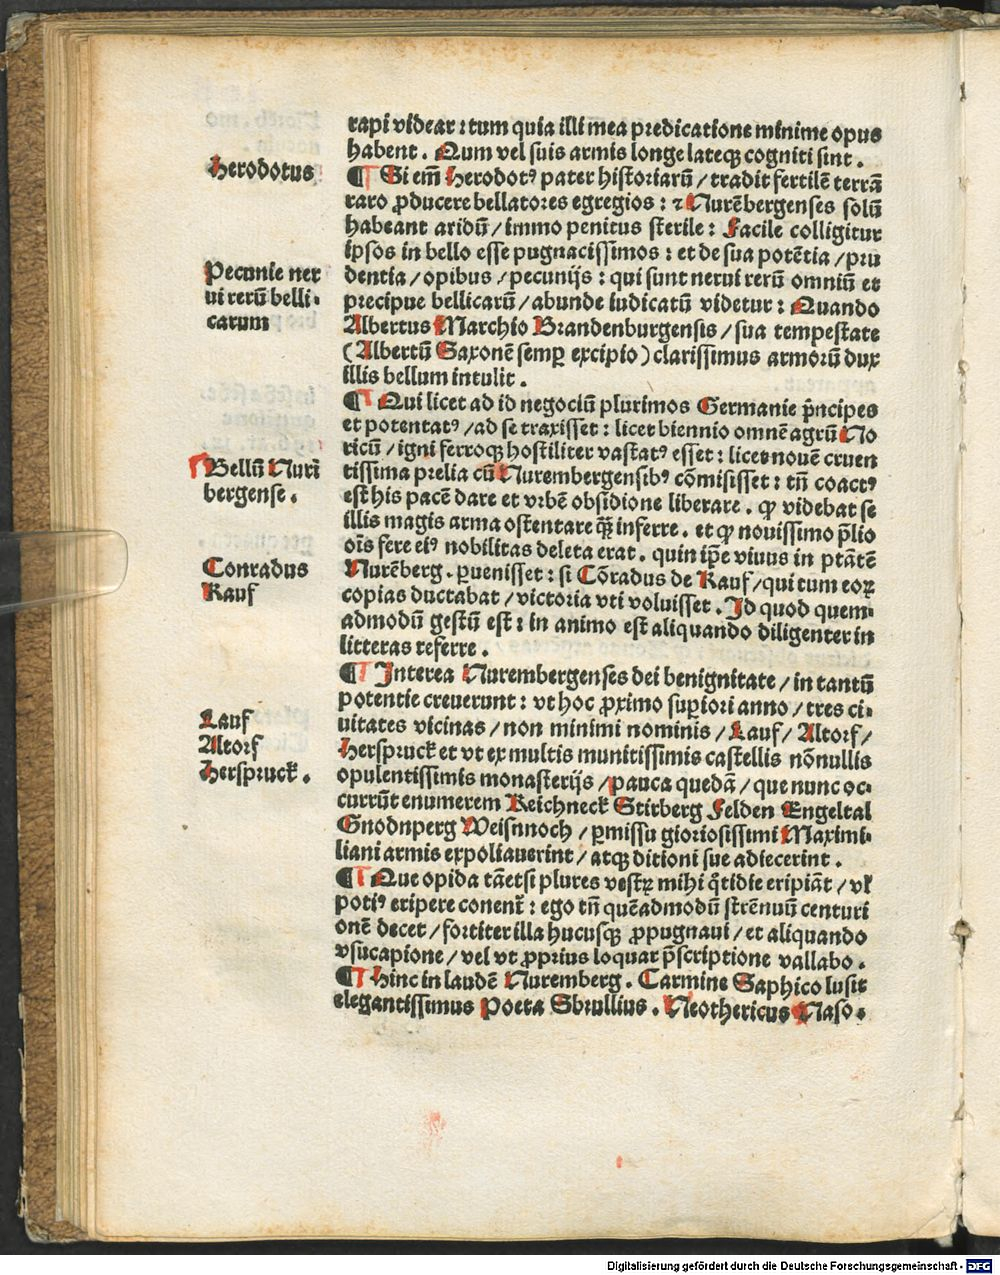 rapi videar : tum quia illi mea predicatione minime opus
habent . Qum vel suis armis longe lateqꝫ cogniti sint .
Herodotus
¶ Si em̄ Herodotꝰ pater historiarū / tradit fertilē terrā
raro ꝓducere bellatores egregios : ⁊ Nurēbergenses solū
habeant aridū / immo penitus sterile : Facile colligitur
ipsos in bello esse pugnacissimos : et de sua potētia / pru
Pecunie ner
dentia / opibus / pecunijs : qui sunt nerui rerū omniū et
ui rerū belli⸗
precipue bellicarū / abunde iudicatū videtur : Quando
carum
Albertus Marchio Brandenburgensis / sua tempestate
( Albertū Saxonē semꝑ excipio ) clarissimus armorū dux
illis bellum intulit .
¶ Qui licet ad id negociū plurimos Germanie p̄ncipes
et potentatꝰ / ad se traxisset : licet biennio omnē agrū No
ricū / igni ferroqꝫ hostiliter vastatꝰ esset : licet nouē cruen
Bellū Nurī
tissima prelia cū Nurembergensibꝰ cōmisisset : tn̄ coactꝰ
bergense .
est his pacē dare et vrbē obsidione liberare . ꝙ videbat se
illis magis arma ostentare qȝ̄ inferre . et ꝙ nouissimo p̄lio
oīs fere eiꝰ nobilitas deleta erat . quin ip̄e viuus in ptātē
Conradus
Nurēberg . ꝑuenisset : si Cōradus de Kauf / qui tum eoꝝ
Kauf
copias ductabat / victoria vti voluisset . Id quod quem⸗
admodū gestū est : in animo est aliquando diligenter in
litteras referre .
¶ Interea Nurembergenses dei benignitate / in tantū
potentie creuerunt : vt hoc ꝓximo suꝑiori anno / tres ci⸗
Lauf
uitates vicinas / non minimi nominis / Lauf / Altorf /
Altorf
Herspruck et vt ex multis munitissimis castellis nōnullis
Herspruck .
opulentissimis monasterijs / pauca quedā / que nunc oc⸗
currūt enumerem Reichneck Stirberg Felden Engeltal
Gnodnperg Weisnnoch / ꝑmissu gloriosissimi Maximi⸗
liani armis expoliauerint / atqꝫ ditioni sue adiecerint .
¶ Que opida tāetsi plures vestꝝ mihi q̄tidie eripiāt / vl̄
potiꝰ eripere conent̄ : ego tn̄ quēadmodū strēnuū centuri
onē decet / fortiter illa hucusqꝫ ꝓpugnaui / et aliquando
vsucapione / vel vt ꝓprius loquar p̄scriptione vallabo .
¶ Hinc in laudē Nuremberg . Carmine Saphico lusit
elegantissimus Poeta Sbrullius . Neothericus Naso .
Digitalisierung gefördert durch die Deutsche Forschungsgemeinschaft - DFG